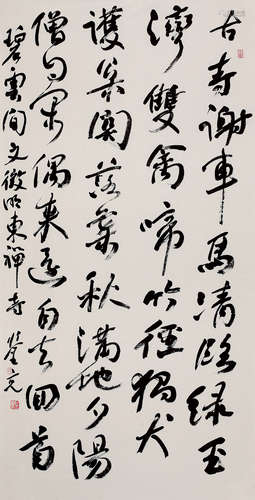 古寺謝車馬清臨綠玉
灣雙禽啼竹徑獨犬
護柴関落葉秋滿地夕陽
僧自閑偶來還自去回首
碧雲間文徵明東禪寺